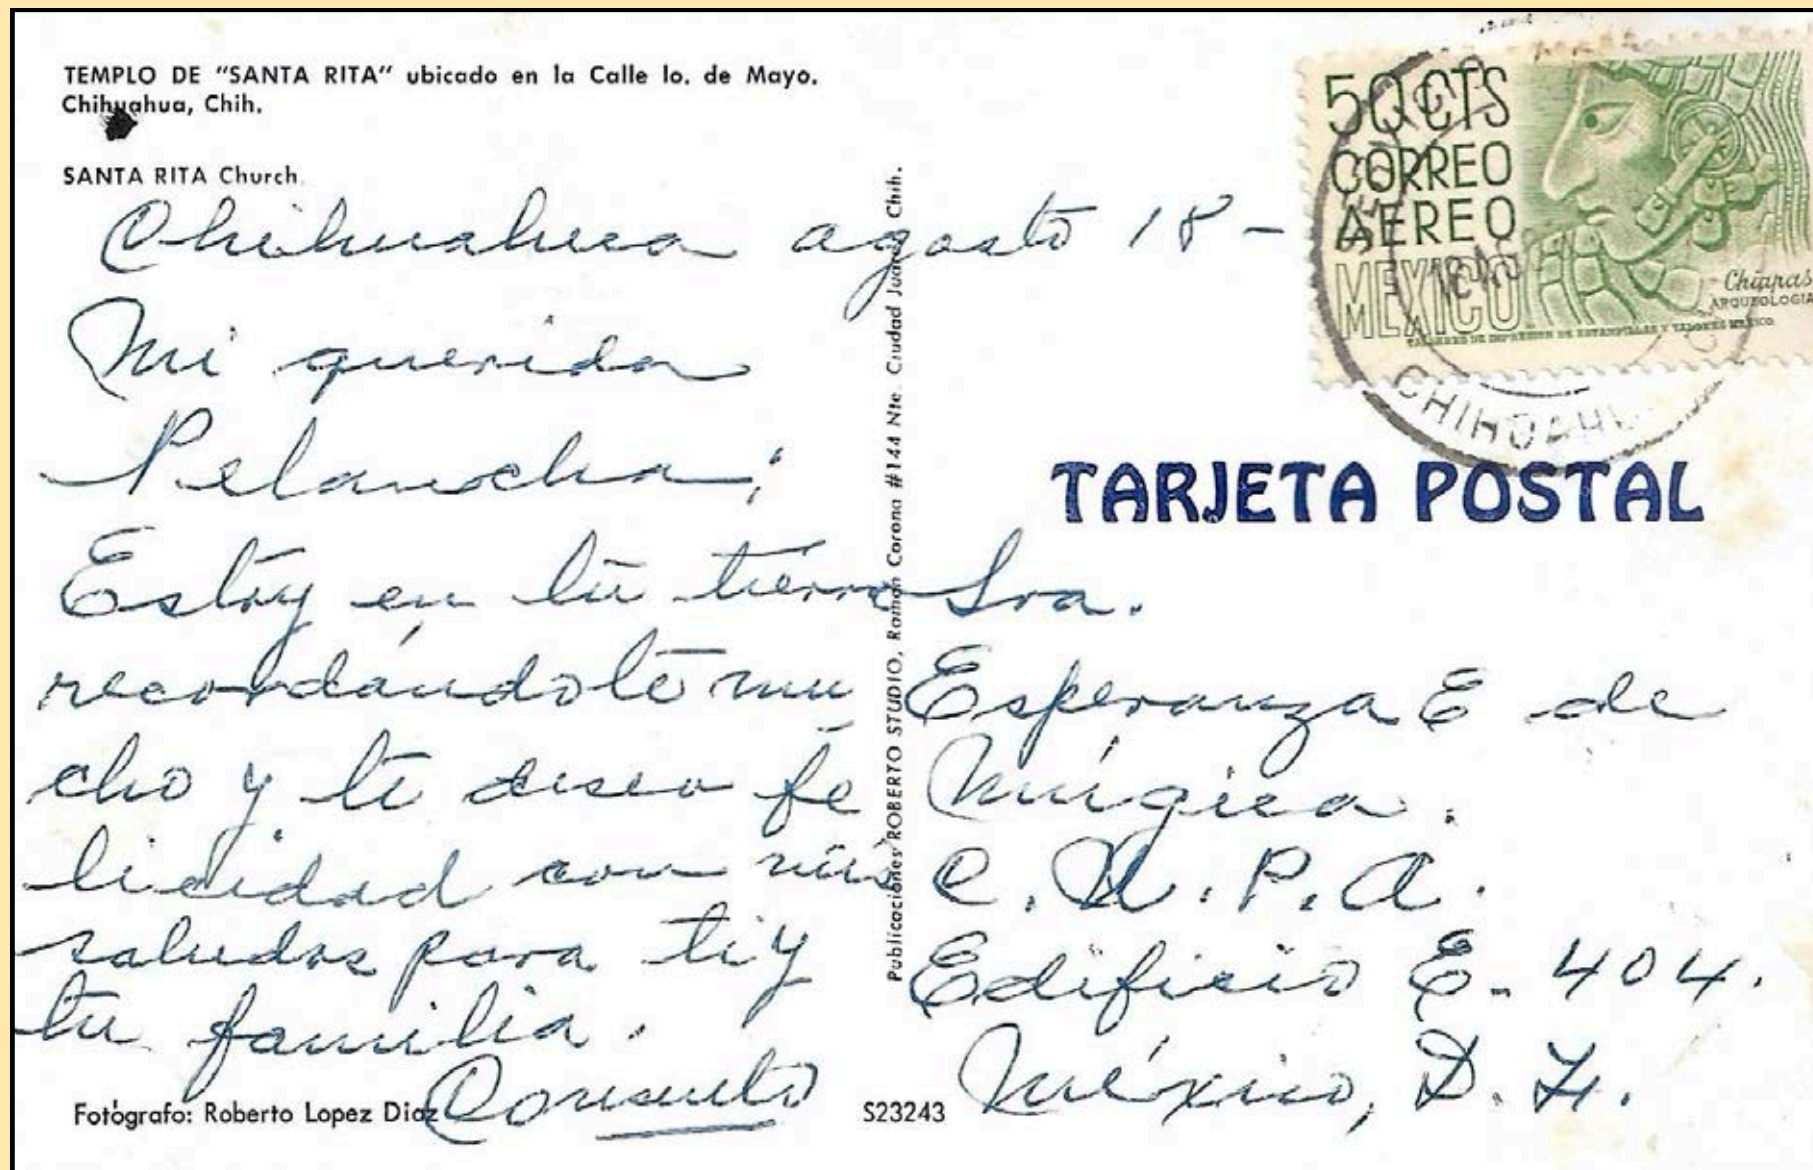 TEMPLO DE "SANTA RITA" ubicado en la Calle 1o. de Mayo.
Chihuahua, Chih.
SANTA RITA Church.
Chihuahua agosto 18 -
Mi querida
Pelancha;
Estoy en tu tierra
recordándote mu
cho y te deseo fe
licidad con mis
saludos para ti y
tu familia.
Fotógrafo: Roberto Lopez Diaz
Publicaciones ROBERTO STUDIO, Ramón Corona #144 Nte. Ciudad Juarez Chih.
S23243
50 CTS
CORREO
AEREO
MEXICO
Chiapas
ARQUEOLOGIA
TALLERES DE IMPRESION DE ESTAMPILLAS Y VALORES MEXICO
TARJETA POSTAL
Sra.
Esperanza E de
Múgica.
C.U.P.A.
Edificio E-404.
México, D.F.